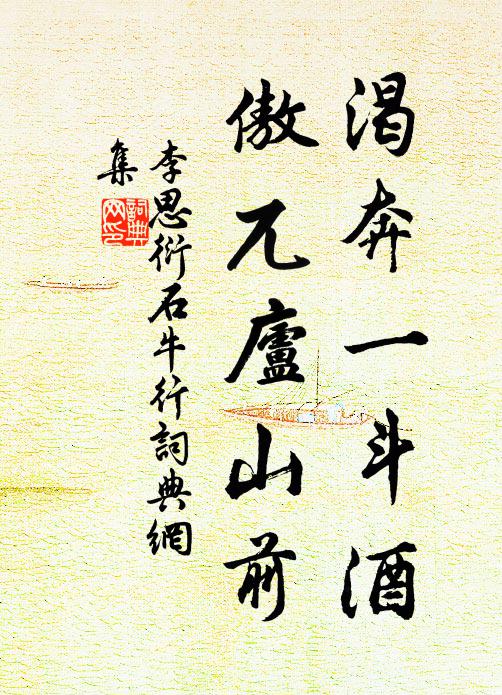 渴奔一斗酒
傲兀廬山前
李思衍石牛行詞典網
集
詞典
网印